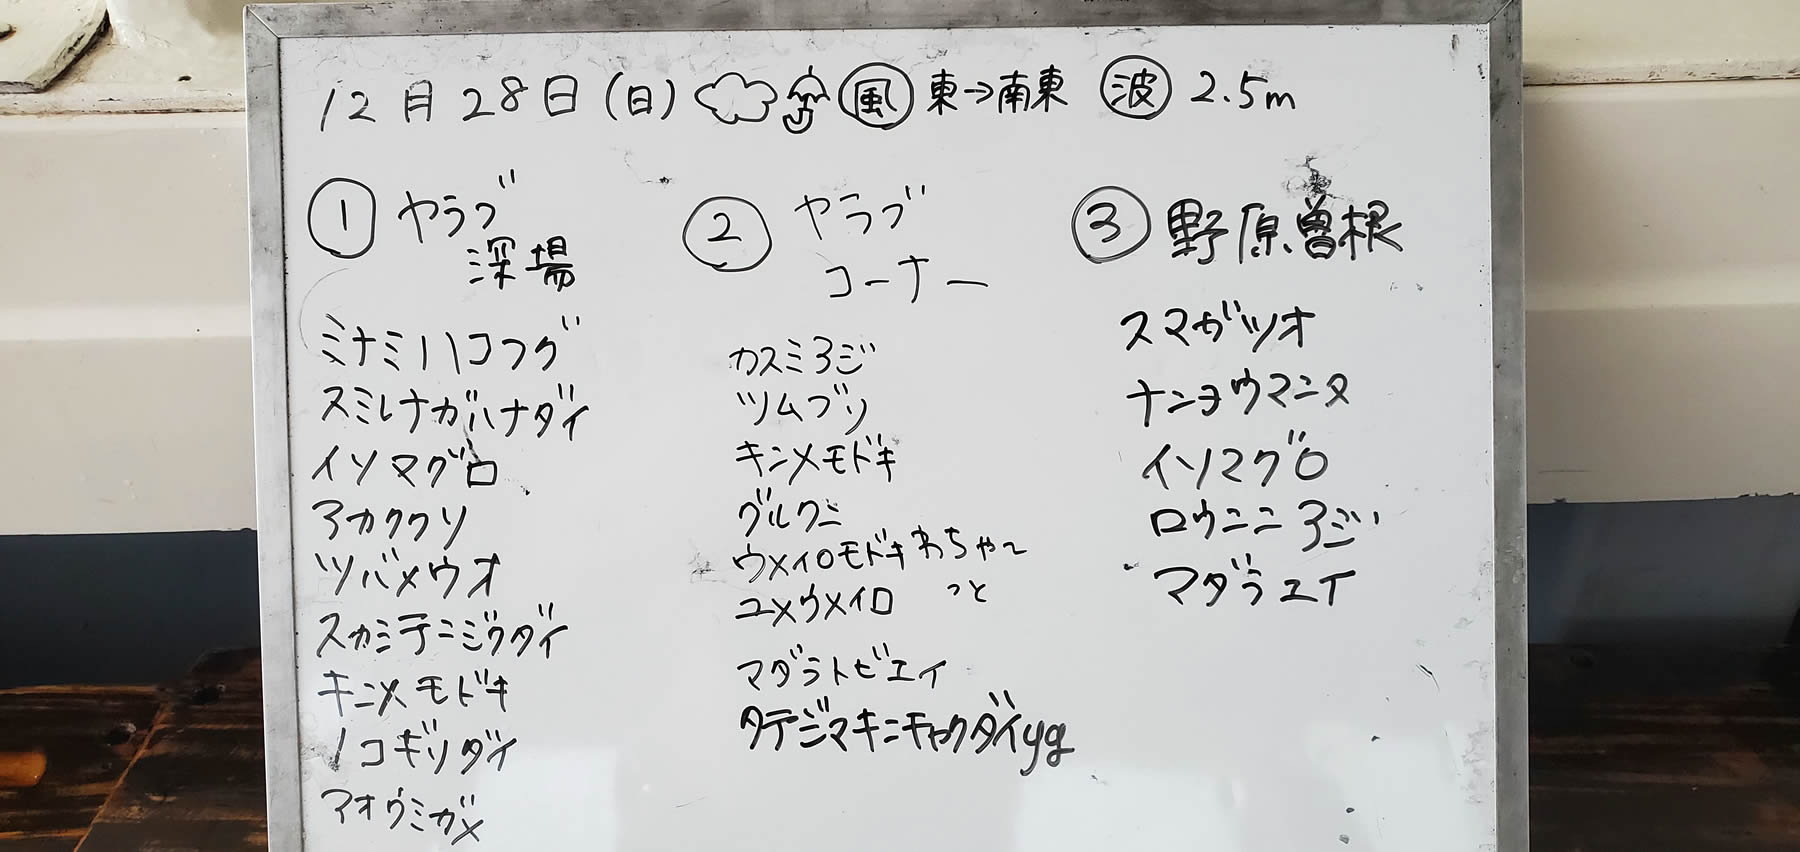 12月28日(日) 風 東→南東 波 2.5m
① ヤラブ
深場
ミナミハコフグ
スミレナガハナダイ
イソマグロ
アカククリ
ツバメウオ
スカシテンジクダイ
キンメモドキ
ノコギリダイ
アオウミガメ
② ヤラブ
コーナー
カスミアジ
ツムブリ
キンメモドキ
グルクン
ウメイロモドキ わちゃ〜
ユメウメイロ っと
マダラトビエイ
タテジマキンチャクダイyg
③ 野原曽根
スマガツオ
ナンヨウマンタ
イソマグロ
ロウニンアジ
マダラエイ